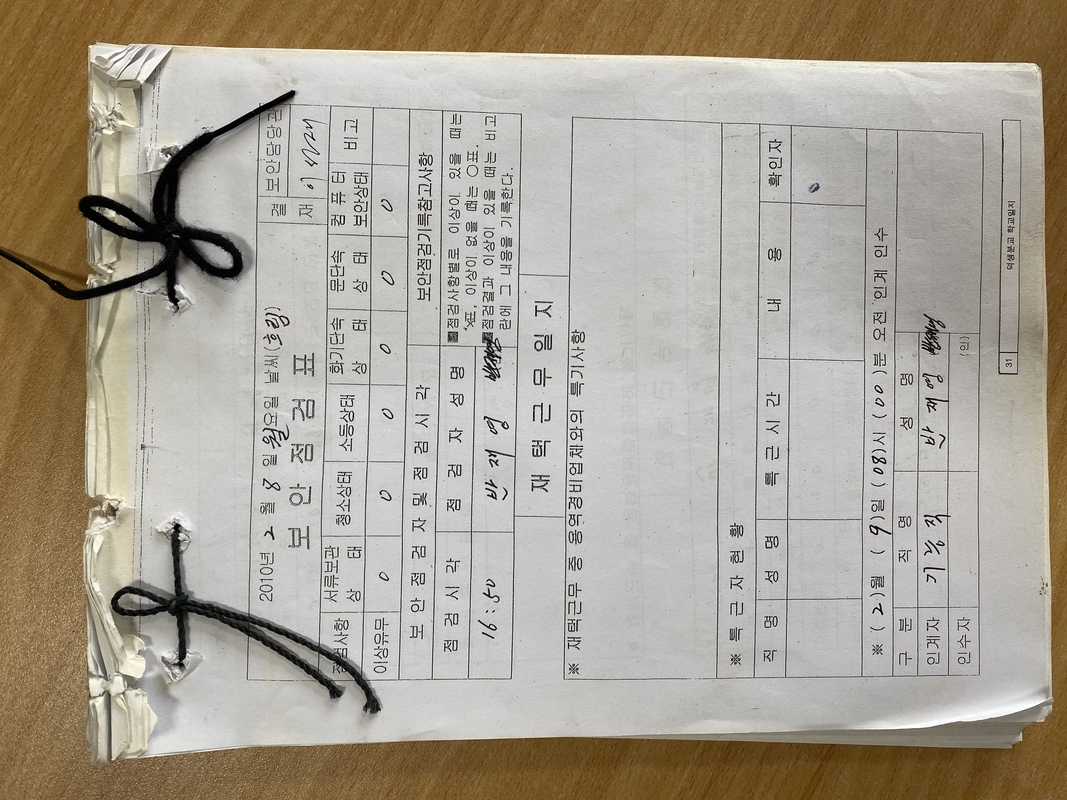 2010년 2 월 8 일 월요일 날씨(흐림)
보 안 점 검 표
결 재
보안담당관
점검사항 서류보관 상 태 청소상태 소등상태 화기단속 상 태 문단속 상 태 컴 퓨 터 보안상태 비고
이상유무 0 0 0 0 0 0
보 안 점 검 자 및 점 검 시 각
보안점검기록참고사항
점 검 시 각 점 검 자 성 명
16:50 반 재 영
점검사항별로 이상이 있을 때는
×표, 이상이 없을 때는 ○표.
점검결과 이상이 있을 때는 비고
란에 그 내용을 기록한다.
재 택 근 무 일 지
※ 재택근무 중 용역경비업체와의 특기사항
※ 특 근 자 현 황
직 명 성 명 특 근 시 간 내 용 확인자
※ ( 2 )월 ( 9 )일 (08)시 (00)분 오전 인계 인수
구 분 직 명 성 명
인계자 기능직 반 재 영
인수자 (인)
31
덕생분교 학교일지